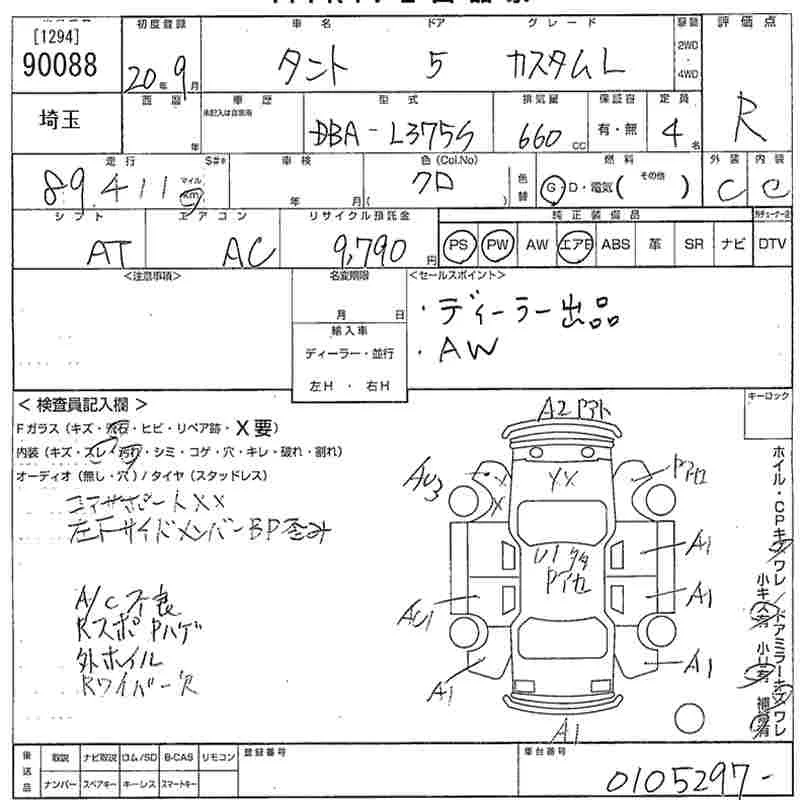 [1294]
90088
初度登録
20年9月
車名
タント
ドア
5
グレード
カスタムL
駆動
2WD
・
4WD
評価点
R
埼玉
西暦
年
車歴
未記入は自家用
型式
DBA-L375S
排気量
660 CC
保証書
有・無
定員
4名
走行
89,411
マイル
km
S#*
車検
年 月(
色(Col.No)
クロ
)
色替
燃料
G・D・電気( その他 )
外装
C
内装
C
シフト
AT
エアコン
AC
リサイクル預託金
9,790円
純正装備品
PS PW AW エアB ABS 革 SR ナビ DTV
<注意事項>
名変期限
月 日
輸入車
ディーラー・並行
左H・右H
<セールスポイント>
・ディーラー出品
・AW
キーロック
<検査員記入欄>
Fガラス(キズ・飛石・ヒビ・リペア跡・X要)
内装(キズ・スレ・汚れ・シミ・コゲ・穴・キレ・破れ・割れ)
オーディオ(無し・穴)/タイヤ(スタッドレス)
コアサポートXX
左Fサイドメンバー BP歪み
A/C不良
RスポPハゲ
外ホイル
Rワイパー欠
A2 Pアト
AU3
XX
X
A1
A1
AU1
A1
A1
A1
ホイル・CPキズワレ/ドアミラーキズワレ
小キズ有 小U有 補修有
後送品
取説 ナビ取説 ロム/SD B-CAS リモコン
ナンバー スペアキー キーレス スマートキー
登録番号
車台番号
0105297-